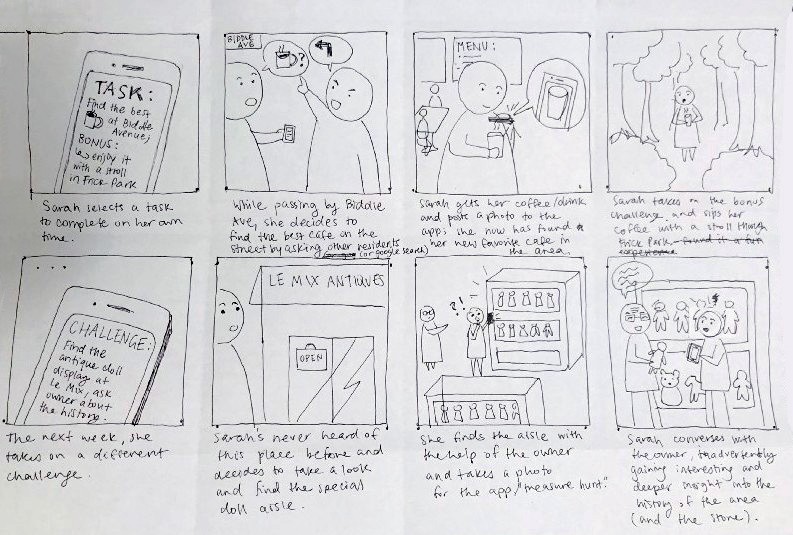 TASK:
Find the best
at Biddle
Avenue;
BONUS:
↳ enjoy it
with a stroll
in Frick Park
Sarah selects a task
to complete on her own
time.
BIDDLE
AVE
?
While passing by Biddle
Ave, she decides to
find the best cafe on the
street by asking other residents
(or google search)
MENU:
Sarah gets her coffee/drink
and posts a photo to the
app; she now has found
her new favorite cafe in
the area.
Sarah takes on the bonus
challenge and sips her
coffee with a stroll though
Frick Park. found it a fun
experience
CHALLENGE:
Find the
antique doll
display at
Le Mix, ask
owner about
the history.
The next week, she
takes on a different
challenge.
LE MIX ANTIQUES
OPEN
Sarah's never heard of
this place before and
decides to take a look
and find the special
doll aisle.
?!
She finds the aisle with
the help of the owner
and takes a photo
for the app, "treasure hunt."
Sarah converses with
the owner, inadvertently
gaining interesting and
deeper insight into the
history of the area
(and the store).